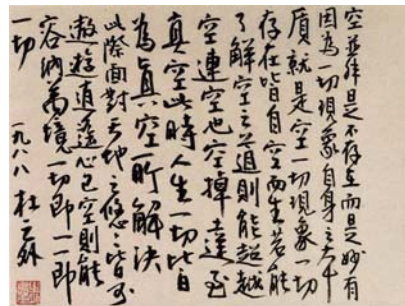 空並非是不存在而是妙有
因為一切現象自身之本
质就是空一切現象一切
存在皆自空而生若能
了解空之道則能超越
空連空也空掉達至
真空此時人生一切皆自
為真空所解決
此際面對天地之悠悠皆可
遨遊逍遙心已空則能
容納萬境一切即一即
一切
一九八八 杜